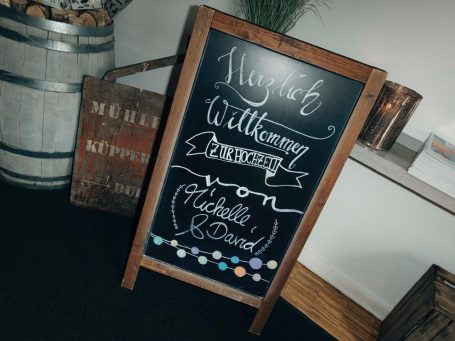 Herzlich
Willkommen
ZUR HOCHZEIT
von
Michelle
& David
MÜHLE
KÜPPER